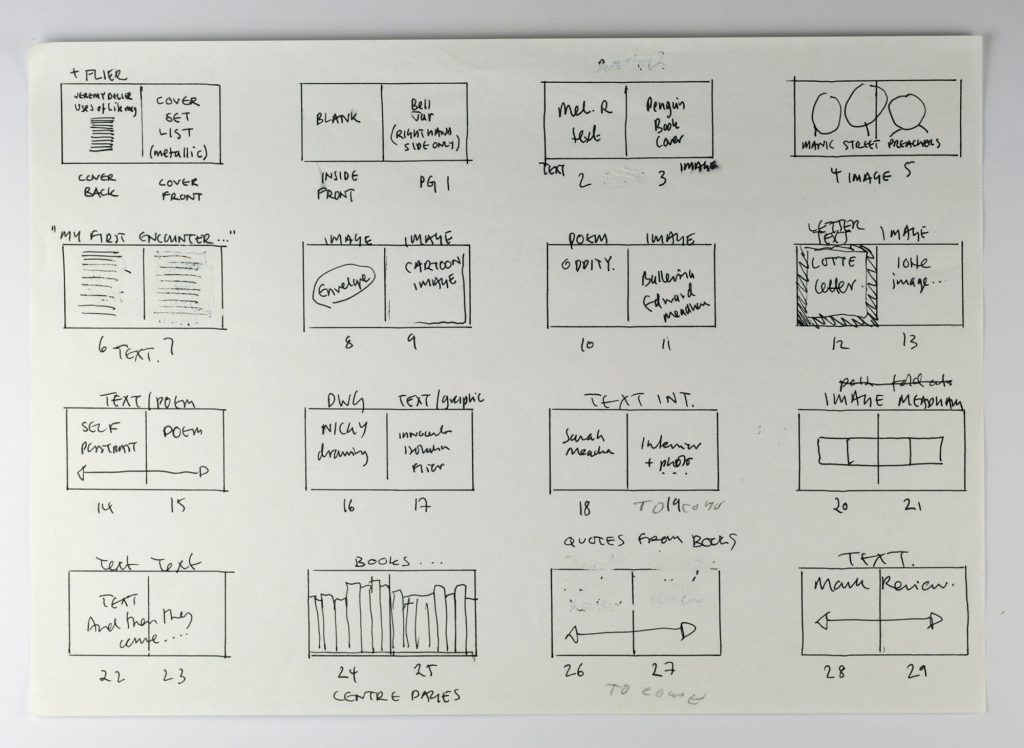 + FLIER
JEREMY DELLER
Uses of Literacy
COVER
SET
LIST
(metallic)
COVER
BACK
COVER
FRONT
BLANK
Bell
Jar
(RIGHT HAND
SIDE ONLY)
INSIDE
FRONT
PG 1
Mel. R
text
Penguin
Book
Cover
TEXT
2
3
IMAGE
MANIC STREET PREACHERS
4 IMAGE 5
"MY FIRST ENCOUNTER..."
6 TEXT. 7
IMAGE
IMAGE
Envelope
CARTOON
IMAGE
8
9
POEM
IMAGE
ODDITY.
Ballerina
Edward
Meadham
10
11
LETTER
TEXT
IMAGE
LOTTE
Letter.
lotte
image..
12
13
TEXT/POEM
SELF
PORTRAIT
POEM
14
15
DWG
TEXT/graphic
NICKY
drawing
isolation
Flier
16
17
TEXT INT.
Sarah
Interview
+ photo
...
18
19
TO COME
fold out
IMAGE MEADHAM
20
21
Text Text
TEXT
And then they
came....
22
23
BOOKS...
24
25
CENTRE PAGES
QUOTES FROM BOOKS
26
27
TO COME
TEXT.
Mark Review.
28
29